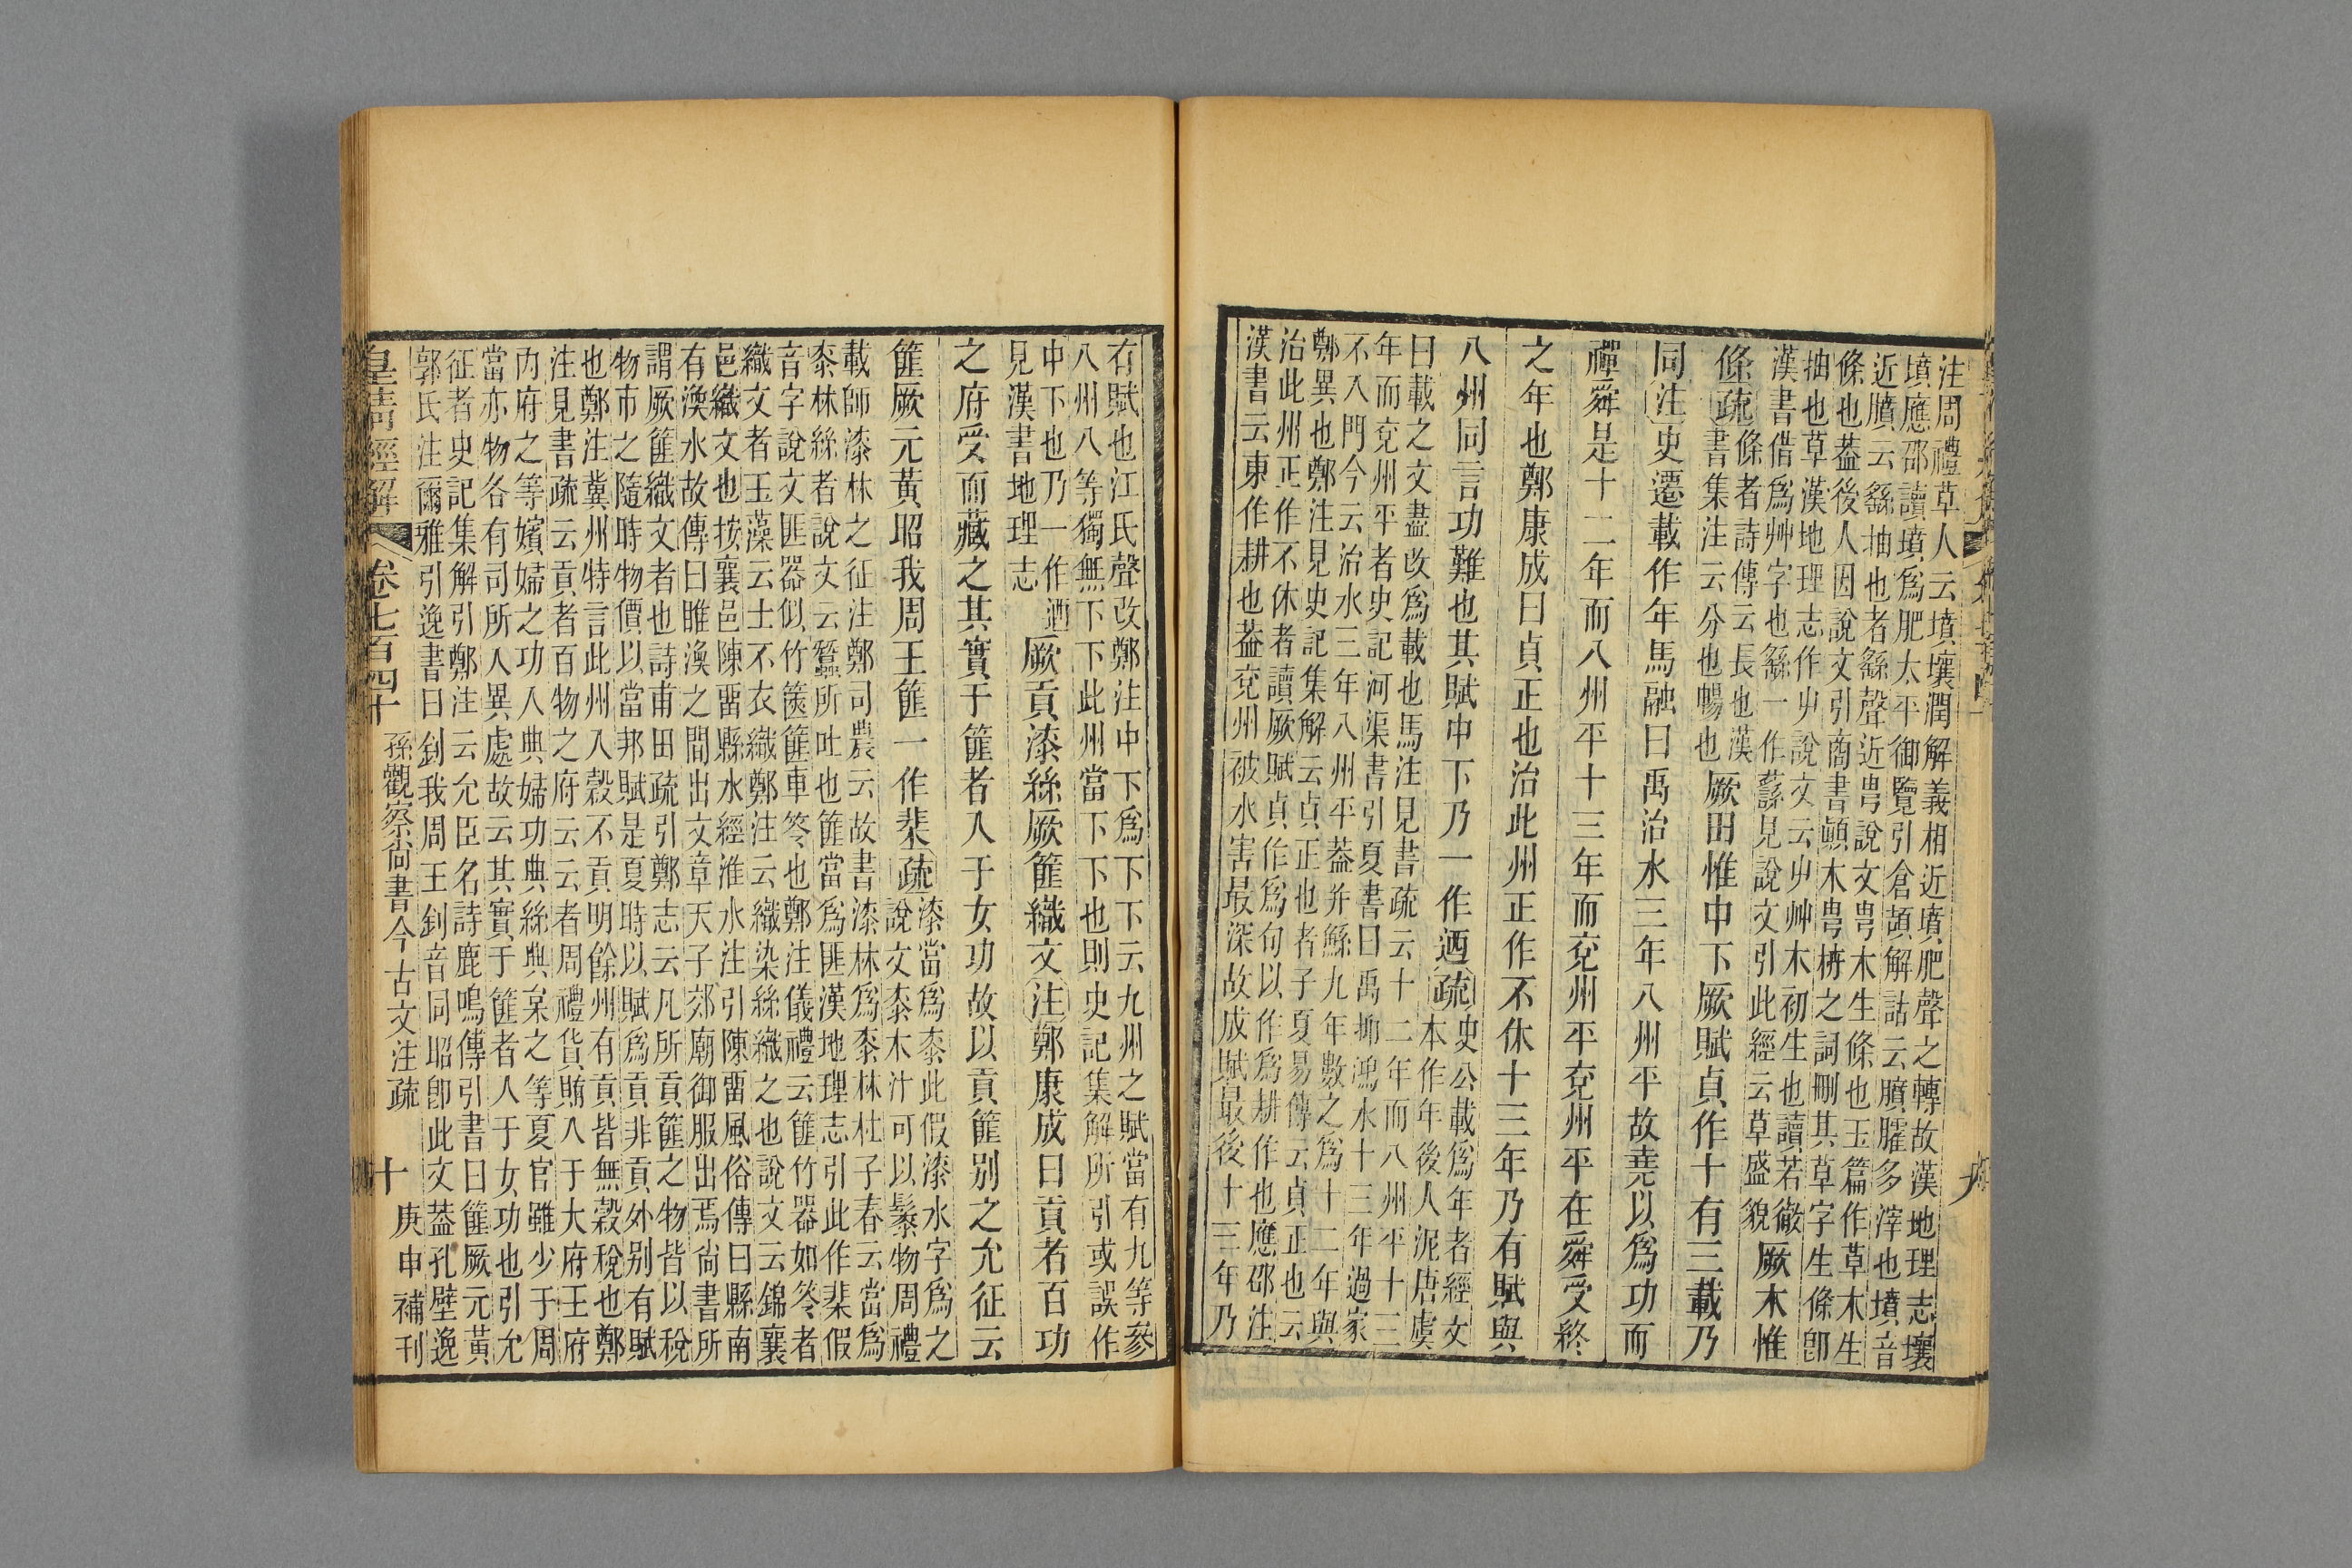 注周禮草人云墳壤潤解義相近墳肥聲之轉故漢地理志壤
墳應邵讀墳爲肥太平御覽引倉頡解詁云膹臛多滓也墳音
近膹云繇抽也者繇聲近甹說文甹木生條也玉篇作草木生
條也葢後人因說文引商書顚木甹枿之詞刪其草字生條卽
抽也草漢地理志作屮說文云屮艸木初生也讀若徹
漢書借爲艸字也繇一作蘨見說文引此經云草盛貌
厥木惟
條疏
條者詩傳云長也漢
書集注云分也暢也
厥田惟中下厥賦貞作十有三載乃
同注史遷載作年馬融曰禹治水三年八州平故堯以爲功而
禪舜是十二年而八州平十三年而兗州平兗州平在舜受終
之年也鄭康成曰貞正也治此州正作不休十三年乃有賦與
八州同言功難也其賦中下乃一作迺疏
史公載爲年者經文
本作年後人泥唐虞
曰載之文盡改爲載也馬注見書疏云十二年而八州平十三
年而兗州平者史記河渠書引夏書曰禹抑鴻水十三年過家
不入門今云治水三年八州平葢并鯀九年數之爲十二年與
鄭異也鄭注見史記集解云貞正也者子夏易傳云貞正也云
治此州正作不休者讀厥賦貞作爲句以作爲耕作也應邵注
漢書云東作耕也葢兗州被水害最深故成賦最後十三年乃
有賦也江氏聲改鄭注中下爲下下云九州之賦當有九等參
八州八等獨無下下此州當下下也則史記集解所引或誤作
中下也乃一作迺
見漢書地理志
厥貢漆絲厥篚織文注鄭康成曰貢者百功
之府受而藏之其實于篚者入于女功故以貢篚别之允征云
篚厥元黃昭我周王篚一作棐疏
漆當爲桼此假漆水字爲之
說文桼木汁可以鬃物周禮
載師漆林之征注鄭司農云故書漆林爲桼林杜子春云當爲
桼林絲者說文云蠶所吐也篚當爲匪漢地理志引此作棐假
音字說文匪器似竹篋篚車笭也鄭注儀禮云篚竹器如笭者
織文者玉藻云士不衣織鄭注云織染絲織之也說文云錦襄
邑織文也按襄邑陳畱縣水經淮水注引陳畱風俗傳曰縣南
有渙水故傳曰睢渙之間出文章天子郊廟御服出焉尙書所
謂厥篚織文者也詩甫田疏引鄭志云凡所貢篚之物皆以稅
物市之隨時物價以當邦賦是夏時以賦爲貢非貢外别有賦
也鄭注冀州特言此州入穀不貢明餘州有貢皆無穀稅也鄭
注見書疏云貢者百物之府云云者周禮貨賄入于大府王府
內府之等嬪婦之功人典婦功典絲典枲之等夏官雖少于周
當亦物各有司所入異處故云其實于篚者入于女功也引允
征者史記集解引鄭注云允臣名詩鹿鳴傳引書曰篚厥元黃
郭氏注爾雅引逸書曰釗我周王釗音同昭卽此文葢孔壁逸
皇淸經解
卷七百四十
孫觀察尙書今古文注疏
十
庚申補刊